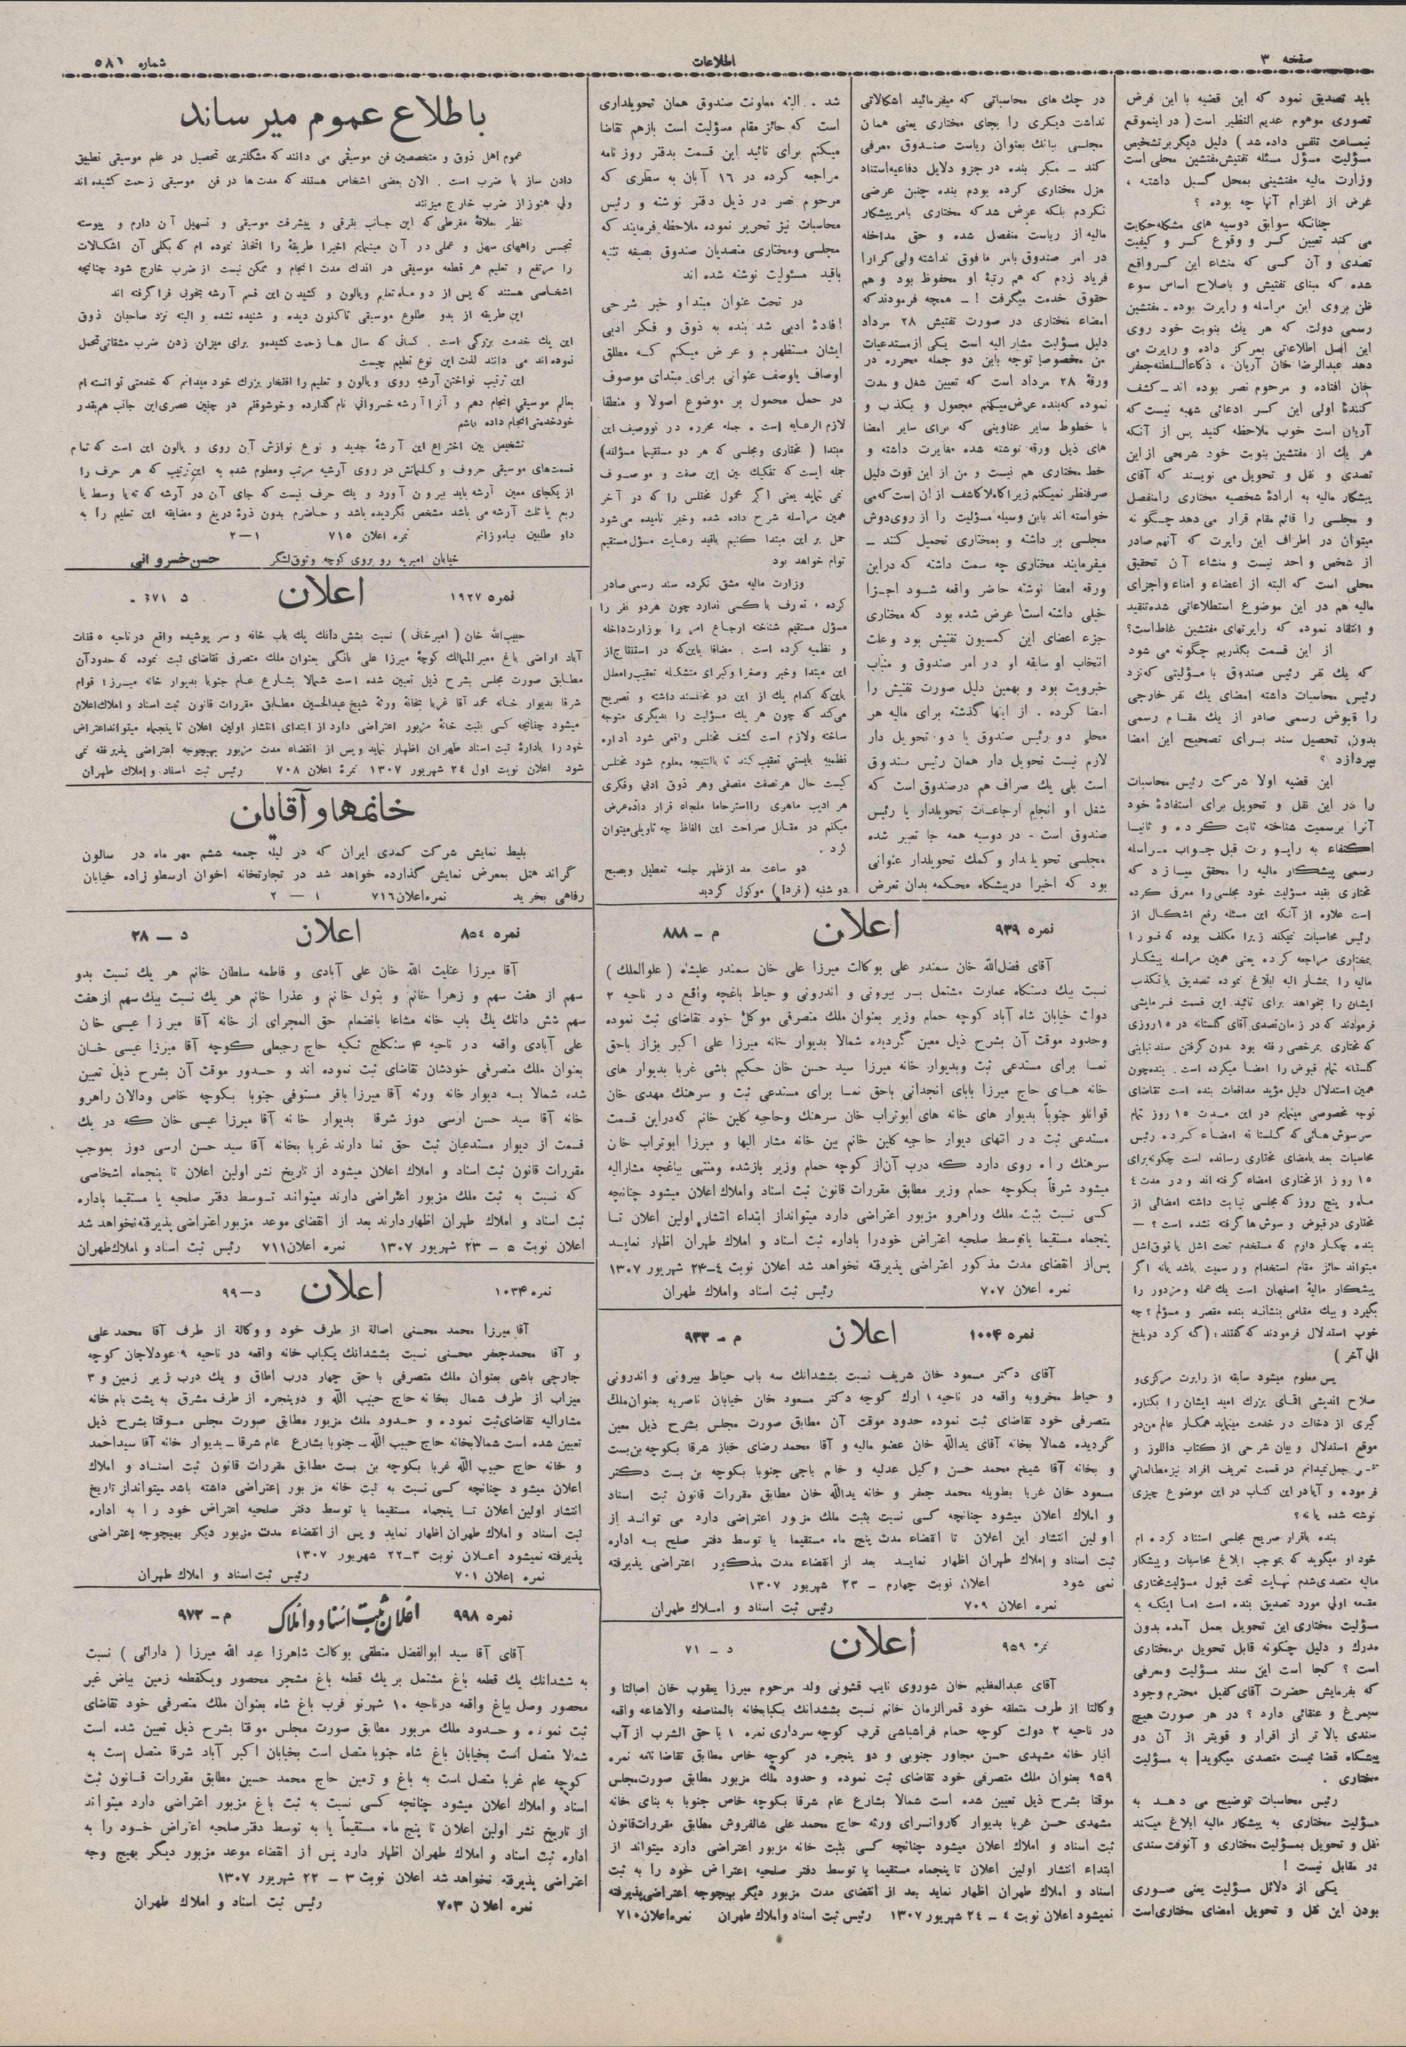 صفحه ۳
اطلاعات
شماره ۵۸۱
باید تصدیق نمود که این قضیه با این فرض
تصوری موهوم عدیم النظیر است ( در اینموقع
نیمساعت تنفس داده شد ) دلیل دیگر بر تشخیص
مسؤلیت مسؤل مسئله تفتیش مفتشین محلی است
وزارت مالیه مفتشینی بمحل گسیل داشته ،
غرض از اعزام آنها چه بوده ؟
چنانکه سوابق دوسیه های متشکله حکایت
می کند تعیین کسر و وقوع کسر و کیفیت
تصدی و آن کسی که منشاء این کسر واقع
شده که مبنای تفتیش و باصلاح اساس سوء
ظن بروی این مراسله و راپرت بوده ـ مفتشین
رسمی دولت که هر یك بنوبت خود روی
این اصل اطلاعاتی بمرکز داده و راپرت می
دهد عبدالرضا خان آریان ، ذکاءالسلطنه جعفر
خان افتاده و مرحوم نصر بوده اند ـ کشف
کنندهٔ اولی این کسر ادعائی شهبه نیست که
آریان است خوب ملاحظه کنید پس از آنکه
هر یك از مفتشین بنوبت خود شرحی از این
تصدی و نقل و تحویل می نویسند که آقای
پیشکار مالیه به ارادهٔ شخصیه مختاری رامنفصل
و مجلسی را قائم مقام قرار می دهد چگونه
میتوان در اطراف این راپرت که آنهم صادر
از شخص واحد نیست و منشاء آن تحقیق
محلی است که البته از اعضاء و امناء واجرای
مالیه هم در این موضوع استطلاعاتی شده تنقید
و انتقاد نموده که راپرتهای مفتشین غلط است؟
از این قسمت بگذریم چگونه می شود
که یك نفر رئیس صندوق با مسؤلیتی که نزد
رئیس محاسبات داشته امضای یك نفر خارجی
را قبوض رسمی صادر از یك مقام رسمی
بدون تحصیل سند برای تصحیح این امضا
بپردازد ؟
این قضیه اولا شرکت رئیس محاسبات
را در این نقل و تحویل برای استفادهٔ خود
آنرا برسمیت شناخته ثابت کرده و ثانیا
اکتفاء به راپورت قبل جواب مراسله
رسمی پیشکار مالیه را محقق میسازد که
مختاری بقید مسؤلیت خود مجلسی را معرفی کرده
است علاوه از آنکه این مسئله رفع اشکال از
رئیس محاسبات نمیکند زیرا مکلف بوده که فورا
بمختاری مراجعه کرده یعنی همین مراسله پیشکار
مالیه را بمشار الیه ابلاغ نموده تصدیق یا تکذیب
ایشان را بخواهد برای تائید این قسمت فرمایشی
فرمودند که در زمان تصدی آقای گلستانه در ۱۵ روزی
که مختاری بمرخصی رفته بود بدون گرفتن سند نیابتی
گلستانه تمام قبوض را امضا میکرده است . بنده چون
همین استدلال دلیل مؤید مدافعات بنده است تقاضای
توجه مخصوصی مینمایم در این مدت ۱۵ روز تمام
سرسوش هائی که گلستانه امضاء کرده رئیس
محاسبات بعد بامضای مختاری رسانده است چگونه برای
۱۵ روز از مختاری امضاء گرفته اند و در مدت ٤
ماه و پنج روز که مجلسی نیابت داشته امضائی از
مختاری در قبوض و سوش ها گرفته نشده است ؟ ـ
بنده چکار دارم که مستخدم تحت اشل یا فوق اشل
میتواند حائز مقام استخدام و رسمیت باشد یا نه اگر
پیشکار مالیهٔ اصفهان است یك عمله و مزدور را
بگیرد و بیك مقامی بنشاند بنده مقصر و مسؤلم؟ چه
خوب استدلال فرمودند که گفتند : ( گه کرد در بلخ
الی آخر )
پس معلوم میشود سابقه از راپرت مرکزی و
صلاح اندیشی آقای بزرك امید ایشان را بکناره
گیری از دخالت در خدمت مینماید همکار عالم من در
موقع استدلال و بیان شرحی از کتاب داللوز و
جعل نمیدانم در قسمت تعریف افراد نیز مطالعاتی
فرموده و آیا در این کتاب در این موضوع چیزی
نوشته شده یا نه ؟
بنده باقرار صریح مجلسی استناد کرده ام
خود او میگوید که بموجب ابلاغ محاسبات و پیشکار
مالیه متصدی شدم نهایت تحت قبول مسؤلیت مختاری
مقدمه اولی مورد تصدیق بنده است اما اینکه به
مسؤلیت مختاری این تحویل بعمل آمده بدون
مدرك و دلیل چگونه قابل تحویل بر مختاری
است ؟ کجا است این سند مسؤلیت ومعرفی
که بفرمایش حضرت آقای کفیل محترم وجود
سیمرغ و عنقائی دارد ؟ در هر صورت هیچ
سندی بالاتر از اقرار و قویتر از آن دو
پیشگاه قضا نیست متصدی میگوید به مسؤلیت
مختاری .
رئیس محاسبات توضیح می دهد به
مسؤلیت مختاری به پیشکار مالیه ابلاغ میکند
نقل و تحویل بمسؤلیت مختاری و آنوقت سندی
در مقابل نیست !
یکی از دلائل مسؤلیت یعنی صوری
بودن این نقل و تحویل امضای مختاری است
در چك های محاسباتی که میفرمائید اشکالاتی
نداشت دیگری را بجای مختاری یعنی همان
مجلسی بیانك بعنوان ریاست صندوق معرفی
کند ـ مگر بنده در جزو دلایل دفاعیه استناد
عزل مختاری کرده بودم بنده چنین عرضی
نکردم بلکه عرض شد که مختاری بامر پیشکار
مالیه از ریاست منفصل شده و حق مداخله
در امر صندوق بامر مافوق نداشته ولی کرارا
فریاد زدم که هم رتبهٔ او محفوظ بود و هم
حقوق خدمت میگرفت ! ـ همچه فرمودند که
امضاء مختاری در صورت تفتیش ۲۸ مرداد
دلیل مسؤلیت مشار الیه است یکی از مستدعیات
من مخصوصا توجه باین دو جمله محرره در
ورقهٔ ۲۸ مرداد است که تعیین شغل و مدت
نموده که بنده عرض میکنم مجعول و بکذب و
با خطوط سایر عناوینی که برای سایر امضا
های ذیل ورقه نوشته شده مغایرت داشته و
خط مختاری هم نیست و من از این قوت دلیل
صرفنظر نمیکنم زیرا کاملا کاشف از آن است که می
خواسته اند باین وسیله مسؤلیت را از روی دوش
مجلسی بر داشته و بمختاری تحمیل کنند ـ
میفرمایند مختاری چه سمت داشته که در این
ورقه امضا نوشته حاضر واقعه شود اجزا
خیلی داشته است عرض شده بود که مختاری
جزء اعضای این کمسیون تفتیش بود وعلت
انتخاب او سابقه او در امر صندوق و متیاب
خبرویت بود و بهمین دلیل صورت تفتیش را
امضا کرده . از اینها گذشته برای مالیه هر
محلی دو رئیس صندوق یا دو تحویل دار
لازم نیست تحویل دار همان رئیس صندوق
است بلی یك صراف هم در صندوق است که
شغل او انجام ارجاعات تحویلدار یا رئیس
صندوق است ـ در دوسیه همه جا تعبیر شده
مجلسی تحویلدار و کمك تحویلدار عنوانی
بود که اخیرا در پیشگاه محکمه بدان تعرض
شد . البته معاونت صندوق همان تحویلداری
است که حائز مقام مسؤلیت است بازهم تقاضا
میکنم برای تائید این قسمت بدفتر روز نامه
مراجعه کرده در ۱۶ آبان به سطری که
مرحوم نصر در ذیل دفتر نوشته و رئیس
محاسبات نیز تحریر نموده ملاحظه فرمایند که
مجلسی ومختاری متصدیان صندوق بصیغه تثنیه
باقید مسئولیت نوشته شده اند
در تحت عنوان مبتداو خبر شرحی
افادهٔ ادبی شد بنده به ذوق و فکر ادبی
ایشان مستظهرم و عرض میکنم که مطلق
اوصاف یاوصف عنوانی برای مبتدای موصوف
در حمل محمول بر موضوع اصولا و منطقا
لازم الرعایه است . جمله محرره در تووصیف این
مبتدا ( مختاری ومجلسی که هر دو مستقیما مسؤلند)
جمله ایست که تفکیك بین این صفت و موصوف
نمی نماید یعنی اکر محمول مختلس را که در آخر
همین مراسله شرح داده شده وخبر نامیده می شود
حمل بر این مبتدا کنیم باقید رعایت مسؤل مستقیم
توام خواهد بود
وزارت مالیه مشق نکرده سند رسمی صادر
کرده ، تعارف با کسی ندارد چون هردو نفر را
مسؤل مستقیم شناخته ارجاع امر را بوزارت داخله
و نظمیه کرده است . مضافا باین که در استنتاج از
این مبتدا وخبر وصغرا وکبرای متشکله تعقیب را معلل
باین که کدام یك از این دو مختلسند داشته و تصریح
می کند که چون هر یك مسؤلیت را بدیگری متوجه
ساخته ولازم است کشف مختلس واقعی شود اداره
نظمیه بایستی تعقیب کند تا بالنتیجه معلوم شود مختلس
کیست حال هر نصفت منصفی وهر ذوق ادبی وفکری
هر ادیب ماهری رااسترحاما ملجاء قرار داده عرض
میکنم در مقابل صراحت این الفاظ چه تاویلی میتوان
کرد .
دو ساعت بعد ازظهر جلسه تعطیل وبصبح
دو شنبه ( فردا ) موکول گردید
نمره ۹۳۹ اعلان م ـ ۸۸۸
آقای فضل الله خان سمندر علی بوکالت میرزا علی خان سمندر علیشاه ( علوالملك )
نسبت بیك دستگاه عمارت مشتمل بر بیرونی و اندرونی و حیاط باغچه واقع در ناحیه ۲
دولت خیابان شاه آباد کوچه حمام وزیر بعنوان ملك متصرفی موکل خود تقاضای ثبت نموده
وحدود موقت آن بشرح ذیل معین گردیده شمالا بدیوار خانه میرزا علی اکبر بزاز باحق
نما برای مستدعی ثبت وبدیوار خانه میرزا سید حسن خان حکیم باشی غربا بدیوار های
خانه های حاج میرزا بابای انجدانی باحق نما برای مستدعی ثبت و سرهنك مهدی خان
قوانلو جنوباً بدیوار های خانه های ابوتراب خان سرهنك وحاجیه کلین خانم که در این قسمت
مستدعی ثبت در انتهای دیوار حاجیه کلین خانم بین خانه مشار الیها و میرزا ابوتراب خان
سرهنك راه روی دارد که درب آن از کوچه حمام وزیر بازشده ومنتهی بباغچه مشارالیه
میشود شرقاً بکوچه حمام وزیر مطابق مقررات قانون ثبت اسناد واملاك اعلان میشود چنانچه
کسی نسبت بثبت ملك وراهرو مزبور اعتراضی دارد میتواند از ابتداء انتشار اولین اعلان تا
پنجماه مستقیما یا توسط صلحیه اعتراض خودرا باداره ثبت اسناد و املاك طهران اظهار نماید
پس از انقضای مدت مذکور اعتراضی پذیرفته نخواهد شد اعلان نوبت ٤ـ۲٤ شهریور ۱۳۰۷
نمره اعلان ۷۰۷ رئیس ثبت اسناد واملاك طهران
نمره ۱۰۰۴ اعلان م ـ ۹۳۳
آقای دکتر مسعود خان شریف نسبت بششدانك سه باب حیاط بیرونی و اندرونی
و حیاط مخروبه واقعه در ناحیه ۱ ارك کوچه دکتر مسعود خان خیابان ناصریه بعنوان ملك
متصرفی خود تقاضای ثبت نموده حدود موقت آن مطابق صورت مجلس بشرح ذیل معین
گردیده شمالا بخانه آقای یدالله خان عضو مالیه و آقا محمد رضای خباز شرقا بکوچه بن بست
و بخانه آقا شیخ محمد حسن وکیل عدلیه و خانم باجی جنوبا بکوچه بن بست دکتر
مسعود خان غربا بطویله محمد جعفر و خانه یدالله خان مطابق مقررات قانون ثبت اسناد
و املاك اعلان میشود چنانچه کسی نسبت بثبت ملك مزبور اعتراضی دارد می تواند از
اولین انتشار این اعلان تا انقضاء مدت پنج ماه مستقیما یا توسط دفتر صلح به اداره
ثبت اسناد و املاك طهران اظهار نماید بعد از انقضاء مدت مذکور اعتراضی پذیرفته
نمی شود اعلان نوبت چهارم ـ ۲۳ شهریور ۱۳۰۷
نمره اعلان ۷۰۹ رئیس ثبت اسناد و املاك طهران
نمره ۹۵۹ اعلان د ـ ۷۱
آقای عبدالعظیم خان شوروی نایب قشونی ولد مرحوم میرزا یعقوب خان اصالتا و
وکالتا از طرف متعلقه خود قمرالزمان خانم نسبت بششدانك یکبابخانه بالمناصفه والاشاعه واقعه
در ناحیه ۲ دولت کوچه حمام فراشباشی قرب کوچه سرداری نمره ۱ با حق الشرب از آب
انبار خانه مشهدی حسن مجاور جنوبی و دو پنجره در کوچه خاص مطابق تقاضانامه نمره
۹۵۹ بعنوان ملك متصرفی خود تقاضای ثبت نموده و حدود ملك مزبور مطابق صورت مجلس
موقتا بشرح ذیل تعیین شده است شمالا بشارع عام شرقا بکوچه خاص جنوبا به بنای خانه
مشهدی حسن غربا بدیوار کاروانسرای ورثه حاج محمد علی شالفروش مطابق مقررات قانون
ثبت اسناد و املاك اعلان میشود چنانچه کسی بثبت خانه مزبور اعتراضی دارد میتواند از
ابتداء انتشار اولین اعلان تا پنجماه مستقیما یا توسط دفتر صلحیه اعتراض خود را به ثبت
اسناد و املاك طهران اظهار نماید بعد از انقضای مدت مزبور دیگر بهیچوجه اعتراضی پذیرفته
نمیشود اعلان نوبت ٤ ـ ۲٤ شهریور ۱۳۰۷ رئیس ثبت اسناد واملاك طهران نمره اعلان ۷۱۰
باطلاع عموم میرساند
عموم اهل ذوق و متخصصین فن موسیقی می دانند که مشگلترین تحصیل در علم موسیقی تطبیق
دادن ساز با ضرب است . الان بعضی اشخاص هستند که مدت ها در فن موسیقی زحمت کشیده اند
ولی هنوز از ضرب خارج میزنند
نظر بعلاقهٔ مفرطی که این جانب بترقی و پیشرفت موسیقی و تسهیل آن دارم و پیوسته
تجسس راههای سهل و عملی در آن مینمایم اخیرا طریقهٔ را اتخاذ نموده ام که بکلی آن اشکالات
را مرتفع و تعلیم هر قطعه موسیقی در اندك مدت انجام و ممکن نیست از ضرب خارج شود چنانچه
اشخاصی هستند که پس از دو ماه تعلیم ویالون و کشیدن این قسم آرشه بخوبی فرا گرفته اند
این طریقه از بدو طلوع موسیقی تاکنون دیده و شنیده نشده و البته نزد صاحبان ذوق
این یك خدمت بزرگی است . کسانی که سال ها زحمت کشیده و برای میزان زدن ضرب مشقاتی تحمل
نموده اند می دانند لذت این نوع تعلیم چیست
این ترتیب نواختن آرشه روی ویالون و تعلیم را افتخار بزرك خود میدانم که خدمتی توانسته ام
بعالم موسیقی انجام دهم و آنرا آرشه خسروانی نام گذارده و خوشوقتم در چنین عصری این جانب هم بقدر
خود خدمتی انجام داده باشم
تشخیص بین اختراع این آرشهٔ جدید و نوع نوازش آن روی ویالون این است که تمام
قسمت های موسیقی حروف و کلماتش در روی آرشیه مرتب ومعلوم شده به این ترتیب که هر حرف را
از یکجای معین آرشه باید بیرون آورد و یك حرف نیست که جای آن در آرشه که ته یا وسط یا
ربع یا ثلث آرشه می باشد مشخص نگردیده باشد و حاضرم بدون ذرهٔ دریغ و مضایقه این تعلیم را به
داو طلبین بیاموزانم نمره اعلان ۷۱۵ ۱ـ۲
خیابان امیریه رو بروی کوچه وثوق لشگر حسن خسروانی
نمره ۱۹۲۷ اعلان د ۶۷۱ ـ
حبیب الله خان ( امیرخانی ) نسبت بشش دانك یك باب خانه و سر پوشیده واقع در ناحیه ٥ قنات
آباد اراضی باغ معیرالممالك کوچهٔ میرزا علی مانگی بعنوان ملك متصرفی تقاضای ثبت نموده که حدود آن
مطابق صورت مجلس بشرح ذیل تعیین شده است شمالا بشارع عام جنوبا بدیوار خانه میرزا قوام
شرقا بدیوار خانه محمد آقا غربا بخانهٔ ورثه شیخ عبدالحسین مطابق مقررات قانون ثبت اسناد و املاك اعلان
میشود چنانچه کسی بثبت خانهٔ مزبور اعتراضی دارد از ابتدای انتشار اولین اعلان تا پنجماه میتواند اعتراض
خود را بادارهٔ ثبت اسناد طهران اظهار نماید و پس از انقضاء مدت مزبور بهیچوجه اعتراضی پذیرفته نمی
شود اعلان نوبت اول ۲٤ شهریور ۱۳۰۷ نمرهٔ اعلان ۷۰۸ رئیس ثبت اسناد و املاك طهران
خانمها و آقایان
بلیط نمایش شرکت کمدی ایران که در لیله جمعه ششم مهر ماه در سالون
گراند هتل بمعرض نمایش گذارده خواهد شد در تجارتخانه اخوان ارسطو زاده خیابان
رفاهی بخرید نمره اعلان ۷۱۶ ۱ ـ ۲
نمره ۸۵٤ اعلان د ـ ۳۸
آقا میرزا عنایت الله خان علی آبادی و فاطمه سلطان خانم هر یك نسبت بدو
سهم از هفت سهم و زهرا خانم و بتول خانم و عذرا خانم هر یك نسبت بیك سهم از هفت
سهم شش دانك یك باب خانه مشاعا بانضمام حق المجرای از خانه آقا میرزا عیسی خان
علی آبادی واقعه در ناحیه ۴ سنگلج تکیه حاج رجبعلی کوچه آقا میرزا عیسی خان
بعنوان ملك متصرفی خودشان تقاضای ثبت نموده اند و حدود موقت آن بشرح ذیل تعیین
شده، شمالا به دیوار خانه ورثه آقا میرزا باقر مستوفی جنوبا بکوچه خاص ودالان راهرو
خانه آقا سید حسن ارسی دوز شرقا بدیوار خانه آقا میرزا عیسی خان که در یك
قسمت از دیوار مستدعیان ثبت حق نما دارند غربا بخانه آقا سید حسن ارسی دوز بموجب
مقررات قانون ثبت اسناد و املاك اعلان میشود از تاریخ نشر اولین اعلان تا پنجماه اشخاصی
که نسبت به ثبت ملك مزبور اعتراضی دارند میتوانند توسط دفتر صلحیه یا مستقیما باداره
ثبت اسناد و املاك طهران اظهار دارند بعد از انقضای موعد مزبور اعتراضی پذیرفته نخواهد شد
اعلان نوبت ٥ ـ ۲۳ شهریور ۱۳۰۷ نمره اعلان ۷۱۱ رئیس ثبت اسناد و املاك طهران
نمره ۱۰۳۴ اعلان د ـ ۹۹
آقا میرزا محمد محسنی اصالة از طرف خود و وکالة از طرف آقا محمد علی
و آقا محمدجعفر محسنی نسبت بششدانك یکباب خانه واقعه در ناحیه ۹ عودلاجان کوچه
جارچی باشی بعنوان ملك متصرفی با حق چهار درب اطاق و یك درب زیر زمین و ۳
میزاب از طرف شمال بخانه حاج حبیب الله و دوپنجره از طرف مشرق به پشت بام خانه
مشارالیه تقاضای ثبت نموده و حدود ملك مزبور مطابق صورت مجلس موقتا بشرح ذیل
تعیین شده است شمالا بخانه حاج حبیب الله ـ جنوبا بشارع عام شرقا ـ بدیوار خانه آقا سیداحمد
و خانه حاج حبیب الله غربا بکوچه بن بست مطابق مقررات قانون ثبت اسناد و املاك
اعلان میشود چنانچه کسی نسبت به ثبت خانه مزبور اعتراضی داشته باشد میتواند از تاریخ
انتشار اولین اعلان تا پنجماه مستقیما یا توسط دفتر صلحیه اعتراض خود را به اداره
ثبت اسناد و املاك طهران اظهار نماید و پس از انقضاء مدت مزبور دیگر بهیچوجه اعتراضی
پذیرفته نمیشود اعلان نوبت ۳ـ۲۲ شهریور ۱۳۰۷
نمره اعلان ۷۰۱ رئیس ثبت اسناد و املاك طهران
نمره ۹۹۸ اعلان ثبت اسناد و املاک م ـ ۹۷۲
آقای آقا سید ابوالفضل منطقی بوکالت شاهزاده عبد الله میرزا ( دارائی ) نسبت
به ششدانك یك قطعه باغ مشتمل بر یك قطعه باغ مشجر محصور ویکقطعه زمین بیاض غیر
محصور وصل بباغ واقعه در ناحیه ۱۰ شهر نو قرب باغ شاه بعنوان ملك متصرفی خود تقاضای
ثبت نموده و حدود ملك مزبور مطابق صورت مجلس موقتا بشرح ذیل تعیین شده است
شمالا متصل است بخیابان باغ شاه جنوبا متصل است بخیابان اکبر آباد شرقا متصل است به
کوچه عام غربا متصل است به باغ و زمین حاج محمد حسین مطابق مقررات قانون ثبت
اسناد و املاك اعلان میشود چنانچه کسی نسبت به ثبت باغ مزبور اعتراضی دارد میتواند
از تاریخ نشر اولین اعلان تا پنج ماه مستقیماً یا به توسط دفتر صلحیه اعتراض خود را به
اداره ثبت اسناد و املاك طهران اظهار دارد پس از انقضاء موعد مزبور دیگر بهیچ وجه
اعتراضی پذیرفته نخواهد شد اعلان نوبت ۳ ـ ۲۲ شهریور ۱۳۰۷
نمره اعلان ۷۰۳ رئیس ثبت اسناد و املاك طهران